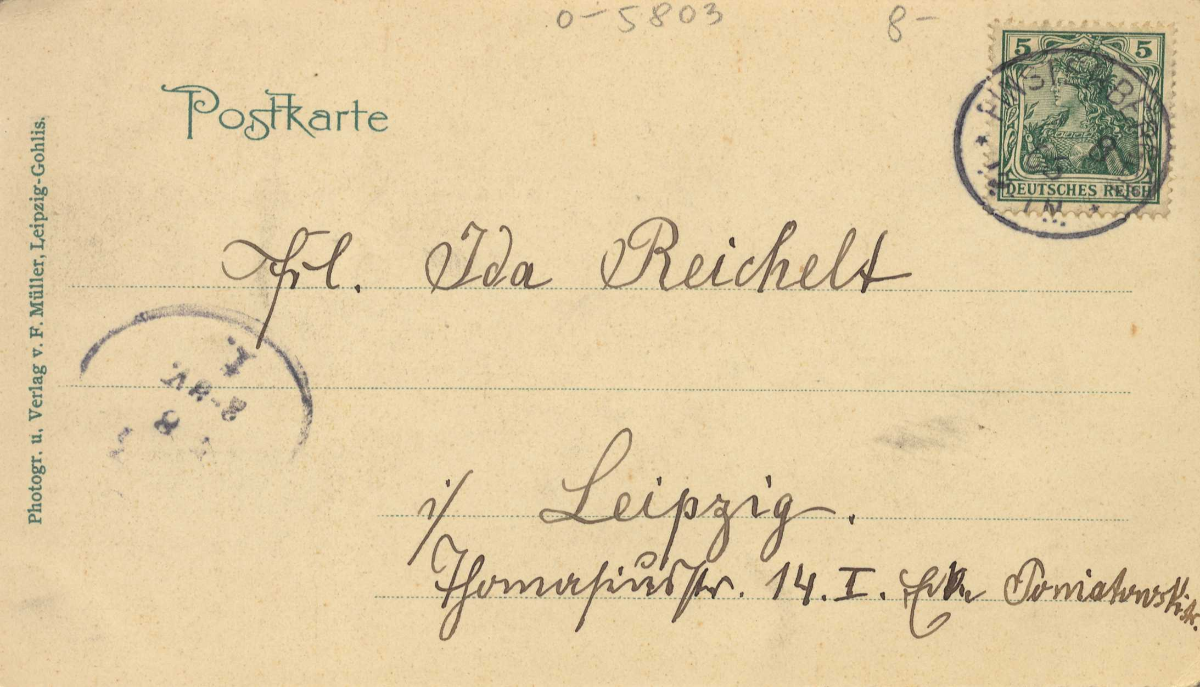 0-5803 8-
5 5
DEUTSCHES REICH
Postkarte
Photogr. u. Verlag v. F. Müller, Leipzig-Gohlis.
Frl. Ida Reichelt
i/ Leipzig.
Thomasiusstr. 14. I. Ecke Poniatowskistr.
8-9V.
8
1.